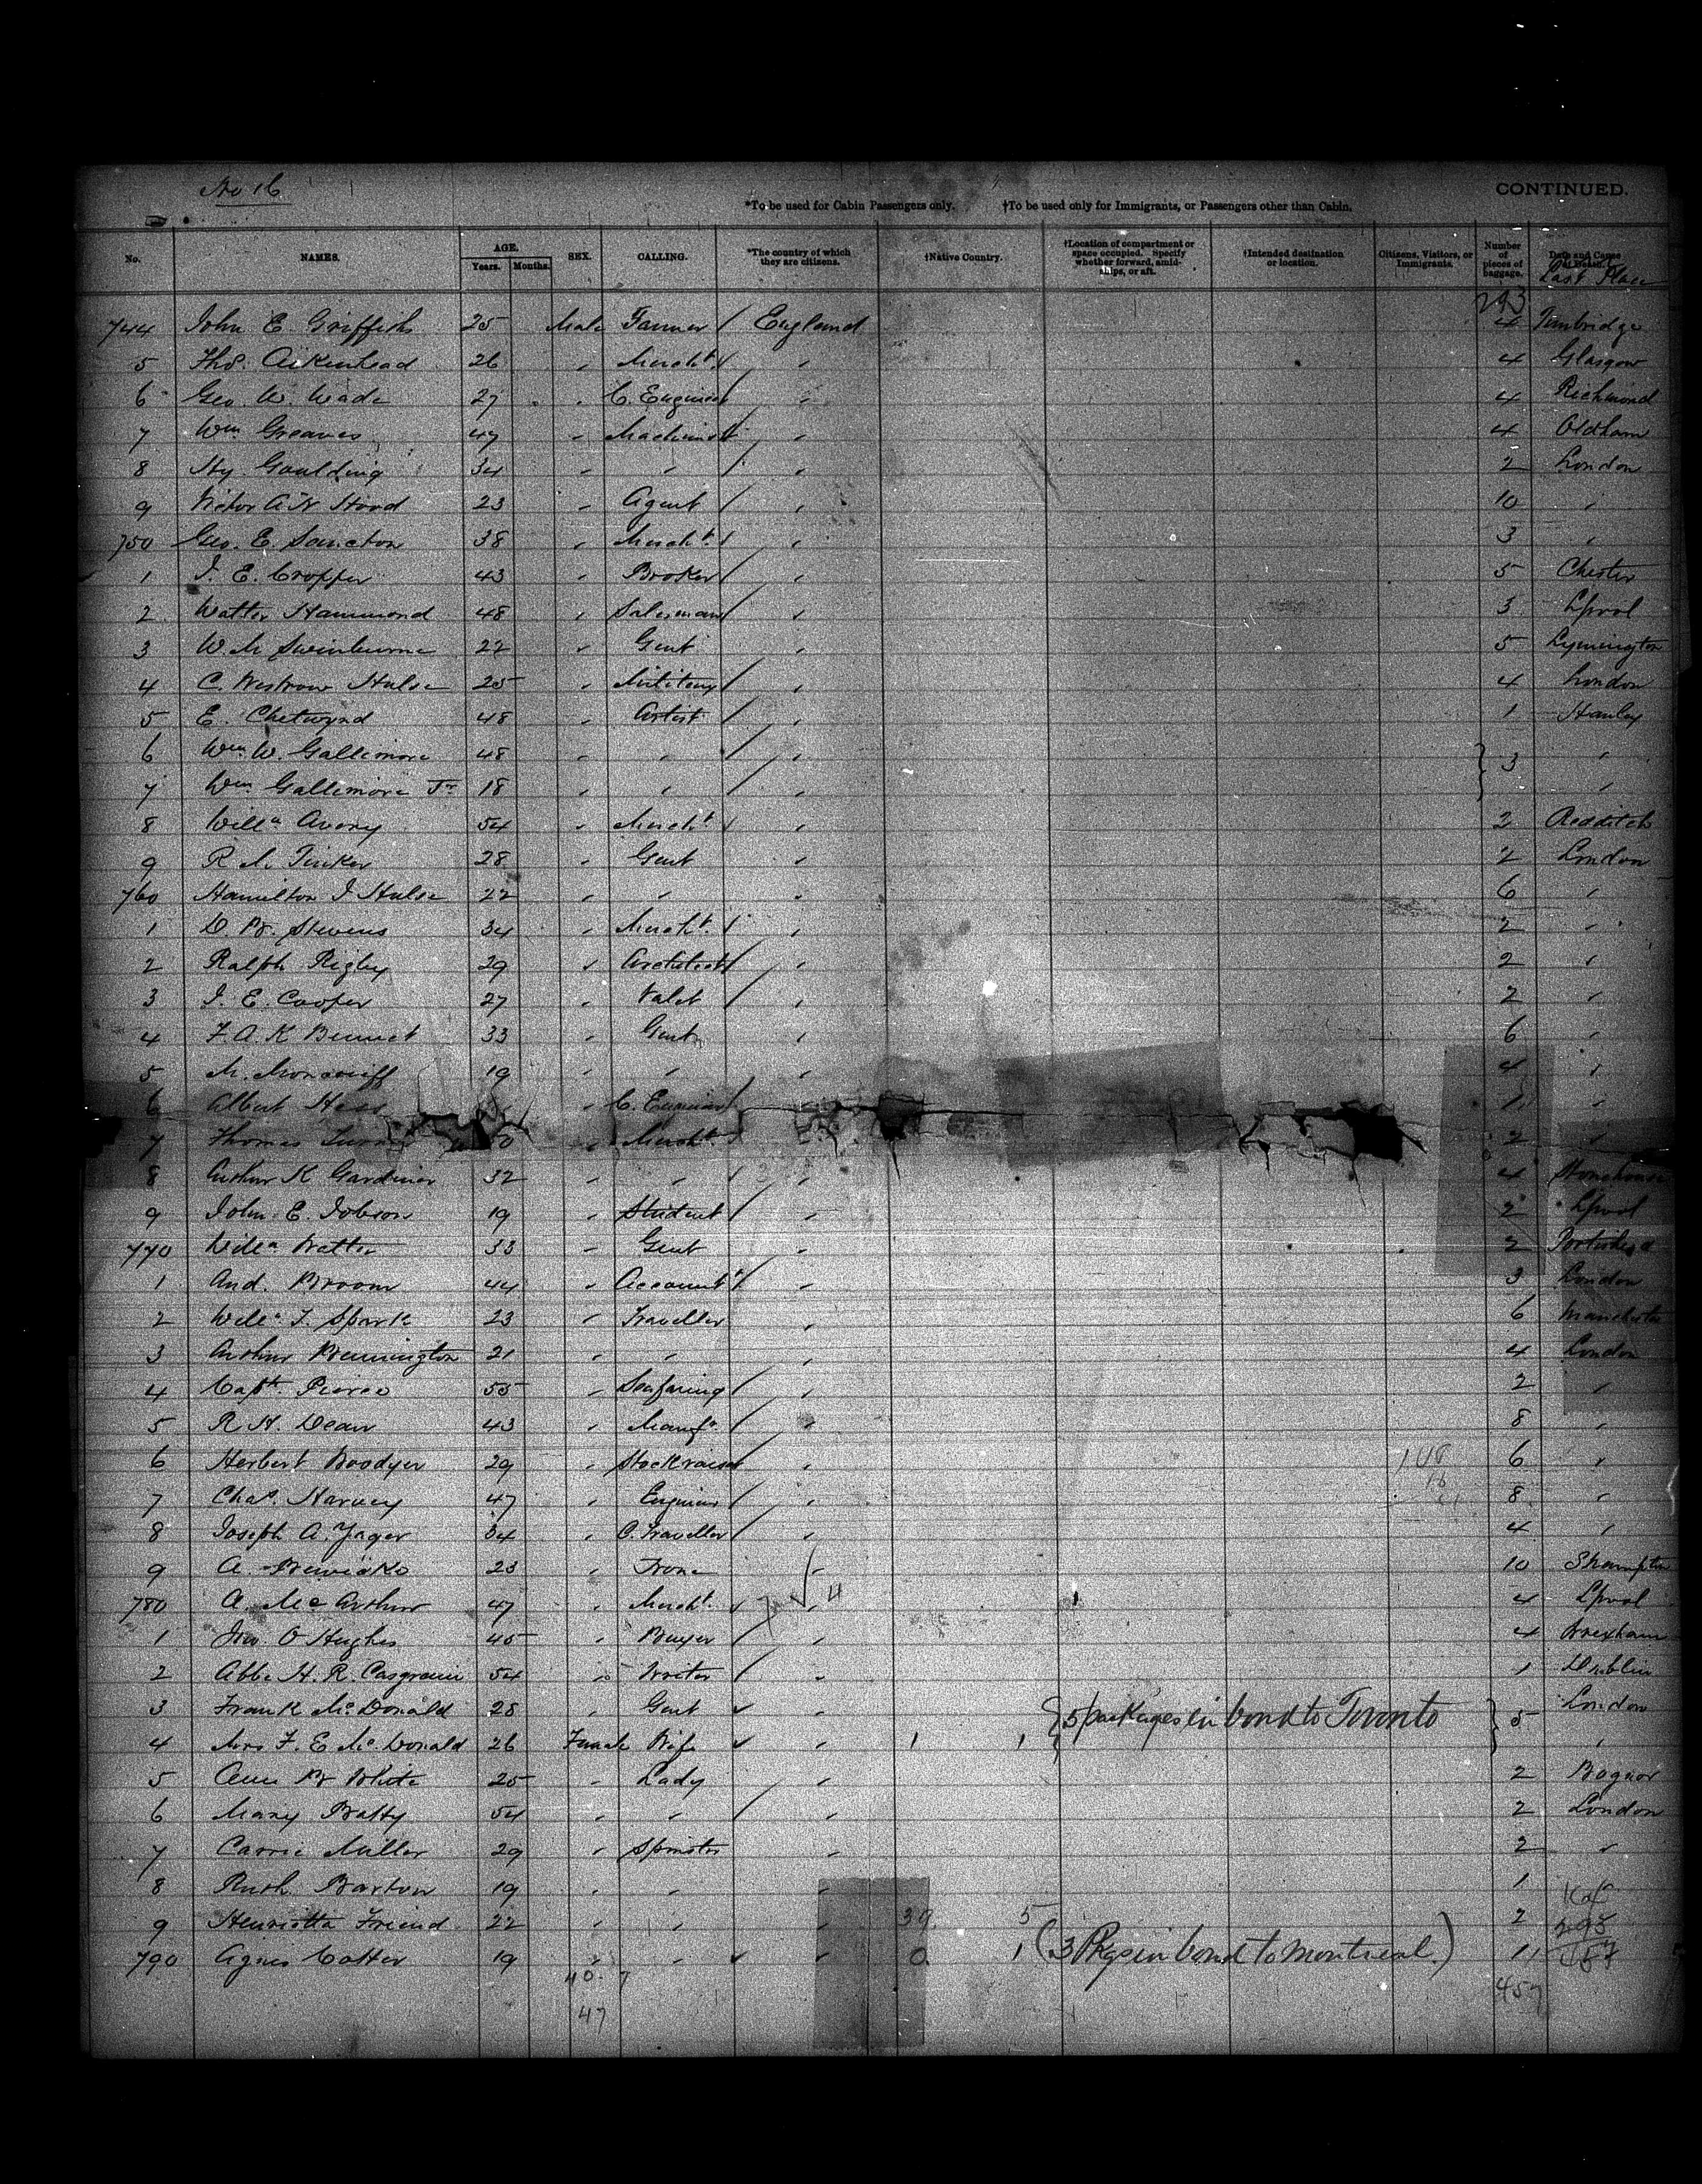 No 16
CONTINUED.
*To be used for Cabin Passengers only. †To be used only for Immigrants, or Passengers other than Cabin.
No. NAMES. AGE. Years. Months. SEX. CALLING. *The country of which they are citizens. †Native Country. †Location of compartment or space occupied. Specify whether forward, amid-ships, or aft. †Intended destination or location. Citizens, Visitors, or Immigrants. Number of pieces of baggage. Date and Cause Last Place
293
744 John E Griffiths 25 Male Farmer / England 4
5 Thos. Aikenhead 26 " Mercht. / " 4 Glasgow
6 Geo. W. Wade 27 " C. Engineer / " 4 Richmond
7 Wm Greaves 47 " Machinist / " 4 Oldham
8 Hy. Goulding 34 " " / " 2 London
9 Victor A N Hood 23 " Agent / " 10 "
750 Geo. E. Sancton 38 " Mercht. / " 3 "
1 J. E. Cropper 43 " Broker / " 5 Chester
2 Walter Hammond 48 " Salesman / " 3 Lpool
3 W. M Swinburne 22 " Gent " 5 Lymington
4 C. Westrow Hulse 25 " Military / " 4 London
5 E. Chetwynd 48 " Artist / " 1 Hanley
6 Wm W. Gallimore 48 " " / " } 3 "
7 Wm Gallimore Jr 18 " " / " "
8 Willm Avery 54 " Mercht / " 2 Redditch
9 R M. Tinker 28 " Gent " 2 London
760 Hamilton J Hulse 22 " " " 6 "
1 D. W. Stevens 34 " Mercht. / " 2 "
2 Ralph Rigby 29 " Architect / " 2 "
3 J. E. Cooper 27 " Valet / " 2 "
4 F. A. K Bennet 33 " Gent " 6 "
5 M. Moncrieff 19 " " " 4 "
6 Albert Hess " C. Engineer / "
7 Thomas " Mercht 2 "
8 Arthur K Gardiner 32 " " / " 4 Stonehouse
9 John E. Jobson 19 " Student / " 2 Lpool
770 Willm Watts 33 " Gent " 2 Portishead
1 And. Broom 44 " Accountt / " 3 London
2 Willm T. Spark 23 " Traveller " 6 Manchester
3 Arthur Bennington 21 " " " 4 London
4 Capt. Pierce 55 " Seafaring / " 2 "
5 R H. Dean 43 " Manfr. / " 8 "
6 Herbert Woodyer 29 " Stockraiser " 6 "
7 Chas. Harvey 47 " Engineer / " 8 "
8 Joseph A. Jager 34 " C. Traveller / " 4 "
9 A. Bewicke 23 " None " 10 Shampton
780 A. McArthur 47 " Mercht. " 4 Lpool
1 Jno. O Hughes 45 " Buyer / " 4 Wrexham
2 Abbe H. R. Casgrain 54 " Writer / " 1 Dublin
3 Frank McDonald 28 " Gent " { 5 packages in bond to Toronto } 5 London
4 Mrs F. E McDonald 26 Female Wife " 1 1 "
5 Ann W White 25 " Lady " 2 Bognor
6 Mary Batty 54 " " / " 2 London
7 Carrie Miller 29 " Spinster " 2 "
8 Ruth Barton 19 " " " 1
9 Henrietta Friend 22 " " " 39 5 2
790 Agnes Cotter 19 " " " 0 1 (3 Pkgs in bond to Montreal.)
40 7
47
457